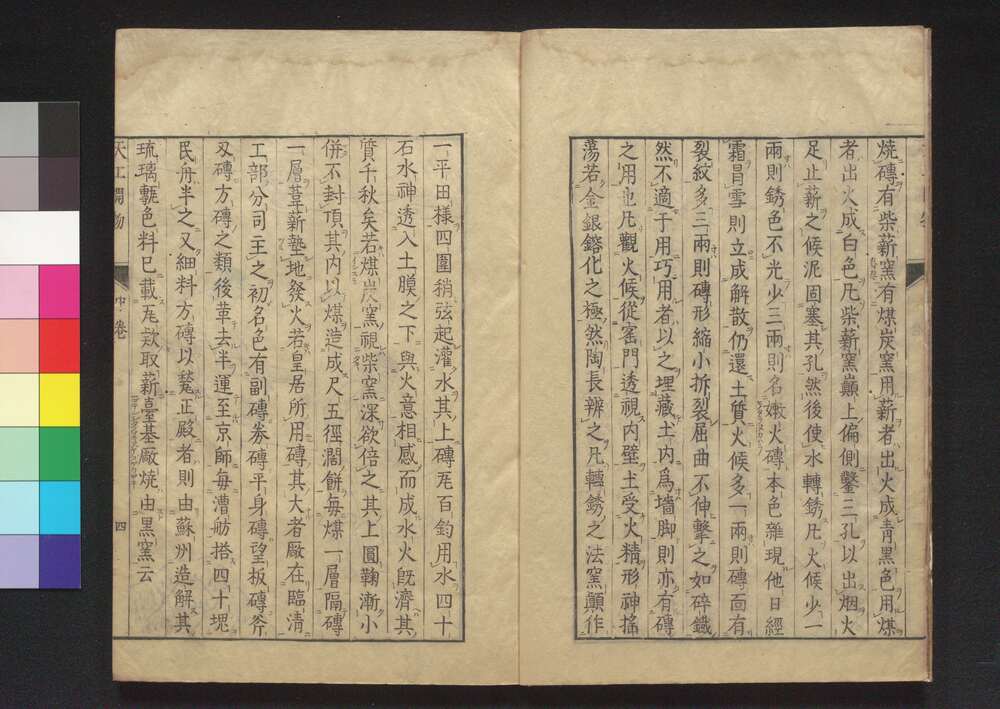 燒磚有柴薪窯有煤炭窯用薪者出火成青黑色用煤
者出火成白色凡柴薪窯巔上偏側鑿三孔以出烟火
足止薪之候泥固塞其孔然後使水轉銹凡火候少一
兩則銹色不光少三兩則名嫩火磚本色雜現他日經
霜冒雪則立成解散仍還土質火候多一兩則磚面有
裂紋多三兩則磚形縮小拆裂屈曲不伸擊之如碎鐵
然不適于用巧用者以之埋藏土內爲墻脚則亦有磚
之用也凡觀火候從窑門透視內壁土受火精形神搖
蕩若金銀鎔化之極然陶長辨之凡轉銹之法窯巔作
一平田樣四圍稍弦起灌水其上磚瓦百鈞用水四十
石水神透入土膜之下與火意相感而成水火旣濟其
質千秋矣若煤炭窯視柴窯深欲倍之其上圓鞠漸小
併不封頂其內以煤造成尺五徑濶餅每煤一層隔磚
一層葦薪墊地發火若皇居所用磚其大者廠在臨清
工部分司主之初名色有副磚券磚平身磚望板磚斧
刄磚方磚之類後革去半運至京師每漕舫搭四十塊
民舟半之又細料方磚以甃正殿者則由蘇州造解其
琉璃甎色料已載瓦款取薪臺基廠燒由黑窯云
天工開物
中卷
四